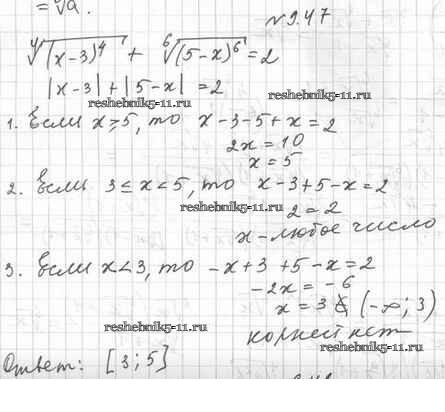 = ∜a.
№9.47
⁴√(x-3)⁴ + ⁶√(5-x)⁶ = 2
|x-3| + |5-x| = 2
reshebnik5-11.ru
reshebnik5-11.ru
1. Если x ≥ 5, то x - 3 - 5 + x = 2
2x = 10
x = 5
2. Если 3 ≤ x < 5, то x - 3 + 5 - x = 2
reshebnik5-11.ru
2 = 2
x - любое число
3. Если x < 3, то -x + 3 + 5 - x = 2
-2x = -6
x = 3 ∉ (-∞; 3)
reshebnik5-11.ru
корней нет
reshebnik5-11.ru
Ответ: [3; 5]